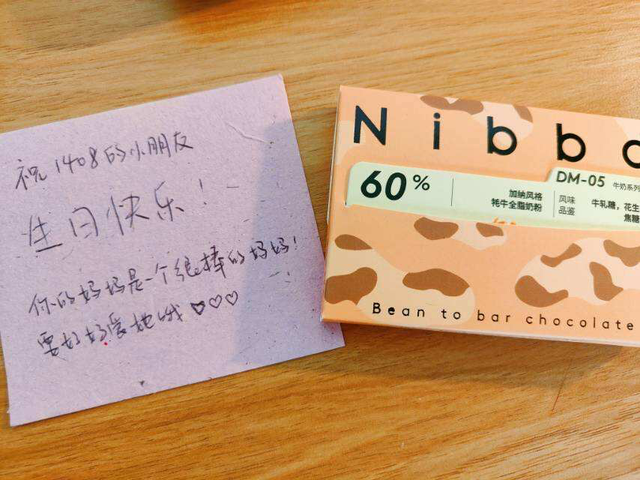 祝1408的小朋友
生日快乐！
你的妈妈是一个很棒的妈妈！
要好好爱她哦♥♡♡
Nibbo
60%
加纳风格
牦牛全脂奶粉
风味
品鉴
DM-05 牛奶系列
牛轧糖，花生
焦糖
Bean to bar chocolate